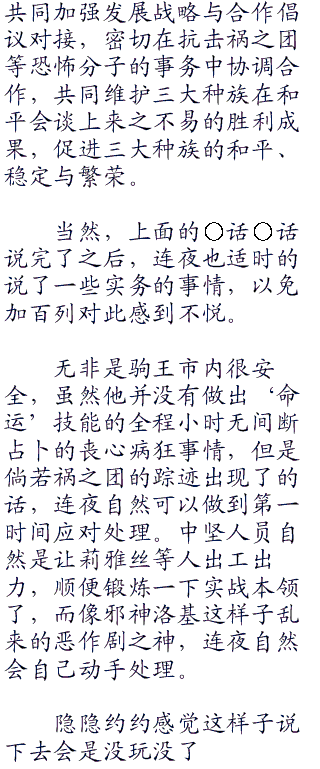 共同加强发展战略与合作倡
议对接，密切在抗击祸之团
等恐怖分子的事务中协调合
作，共同维护三大种族在和
平会谈上来之不易的胜利成
果，促进三大种族的和平、
稳定与繁荣。
当然，上面的○话○话
说完了之后，连夜也适时的
说了一些实务的事情，以免
加百列对此感到不悦。
无非是驹王市内很安
全，虽然他并没有做出‘命
运’技能的全程小时无间断
占卜的丧心病狂事情，但是
倘若祸之团的踪迹出现了的
话，连夜自然可以做到第一
时间应对处理。中坚人员自
然是让莉雅丝等人出工出
力，顺便锻炼一下实战本领
了，而像邪神洛基这样子乱
来的恶作剧之神，连夜自然
会自己动手处理。
隐隐约约感觉这样子说
下去会是没玩没了